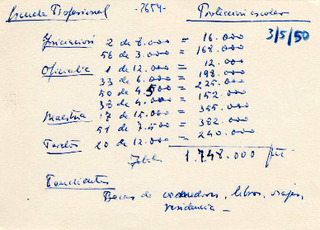 Escuela Profesional -7654- Protección escolar
3/5/50
Iniciación 2 de 8.000 = 16.000
56 de 3.000 = 168.000
Oficialía 1 de 12.000 = 12.000
33 de 6.000 = 198.000
50 de 4.500 = 225.000
38 de 4.000 = 152.000
Maestría 17 de 15.000 = 355.000
51 de 7.500 = 382.000
20 de 12.000 = 240.000
Total 1.748.000 pts
Pendientes
Becas de comedores, libros, viajes,
residencia —